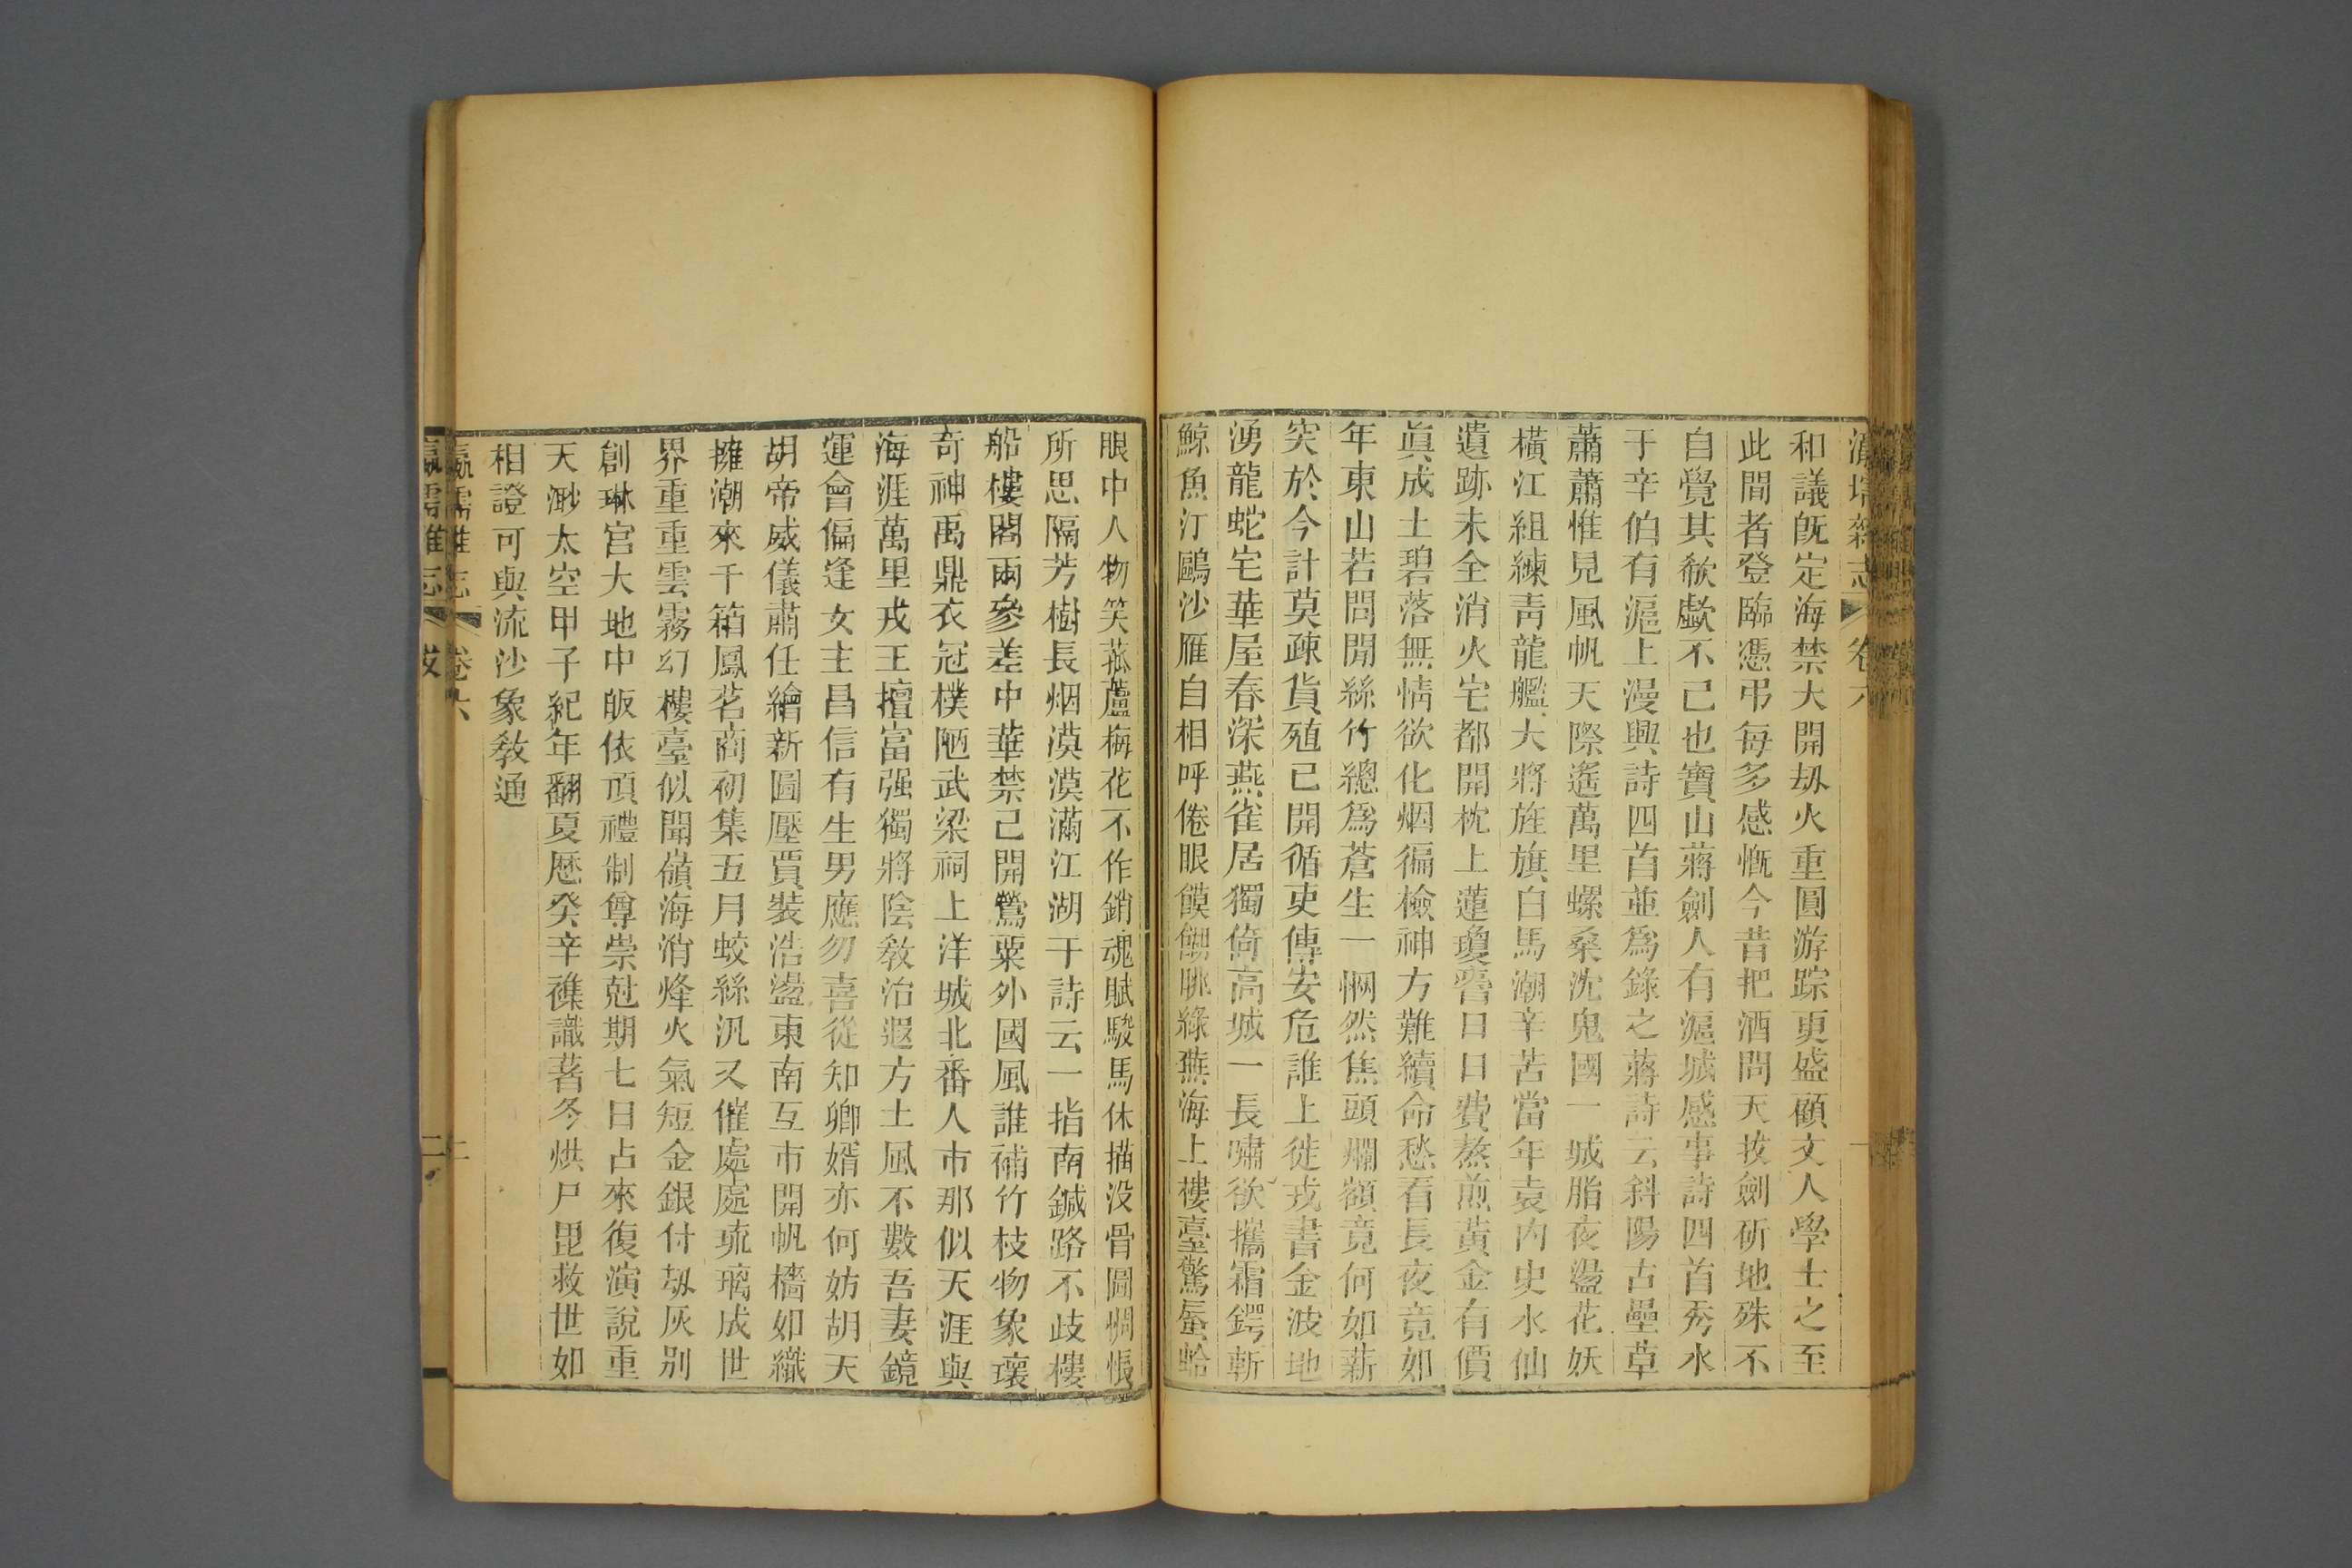 瀛壖雜志 卷六
和議既定海禁大開刼火重圓游踪更盛顧文人學士之至
此間者登臨憑弔每多感慨今昔把酒問天拔劍斫地殊不
自覺其欷歔不已也寶山蔣劍人有滬城感事詩四首秀水
于辛伯有滬上漫興詩四首並爲錄之蔣詩云斜陽古壘草
蕭蕭惟見風帆天際遙萬里螺桑沈鬼國一城脂夜盪花妖
橫江組練靑龍艦大將旌旗白馬潮辛苦當年袁內史水仙
遺跡未全消火宅都開枕上蓮瓊膏日日費熬煎黃金有價
眞成土碧落無情欲化烟徧檢神方難續命愁看長夜竟如
年東山若問閒絲竹總爲蒼生一惘然焦頭爛額竟何如薪
突於今計莫疎貨殖已開循吏傳安危誰上徙戎書金波地
湧龍蛇宅華屋春深燕雀居獨倚高城一長嘯欲攜霜鍔斬
鯨魚汀鷗沙雁自相呼倦眼饃餬眺綠蕪海上樓臺驚蜃蛤
眼中人物笑菰蘆梅花不作銷魂賦駿馬休描没骨圖惆悵
所思隔芳樹長烟漠漠滿江湖于詩云一指南鍼路不歧樓
船樓閣兩參差中華禁已開鶯粟外國風誰補竹枝物象瓌
奇神禹鼎衣冠樸陋武梁祠上洋城北番人市那似天涯與
海涯萬里戎王擅富强獨將陰敎治遐方土風不數吾妻鏡
運會偏逢女主昌信有生男應勿喜從知卿婿亦何妨胡天
胡帝威儀肅任繪新圖壓賈裝浩盪東南互市開帆檣如織
擁潮來千箱鳳茗商初集五月蛟絲汎又催處處琉璃成世
界重重雲霧幻樓臺似聞嶺海消烽火氣短金銀付刼灰别
創琳宮大地中皈依頂禮制尊崇尅期七日占來復演說重
天渺太空甲子紀年翻夏歷癸辛襍識著冬烘尸毘救世如
相證可與流沙象敎通
瀛壖雜志 卷六 二
瀛壖雜志 跋 二